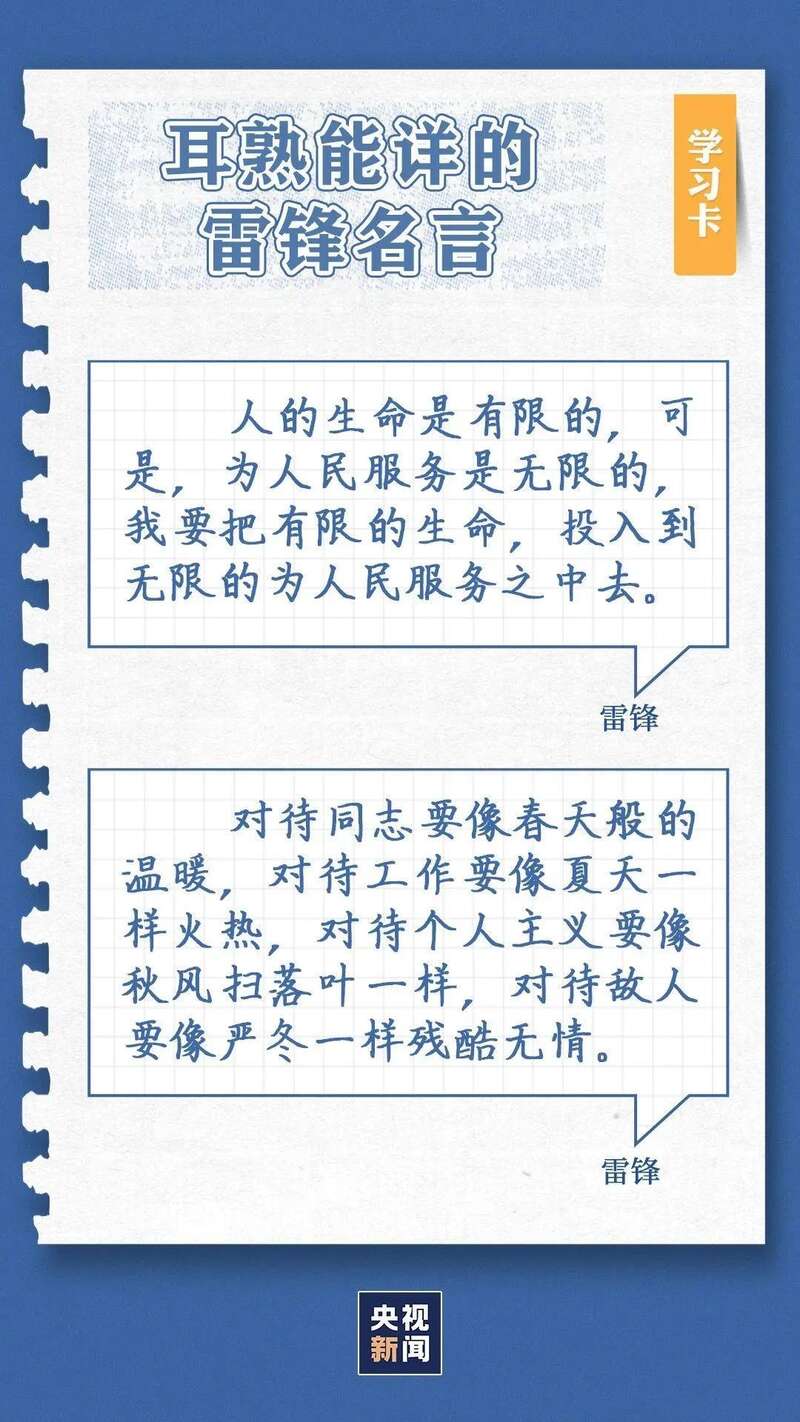 耳熟能详的
雷锋名言
学习卡
人的生命是有限的，可
是，为人民服务是无限的，
我要把有限的生命，投入到
无限的为人民服务之中去。
雷锋
对待同志要像春天般的
温暖，对待工作要像夏天一
样火热，对待个人主义要像
秋风扫落叶一样，对待敌人
要像严冬一样残酷无情。
雷锋
央视
新闻